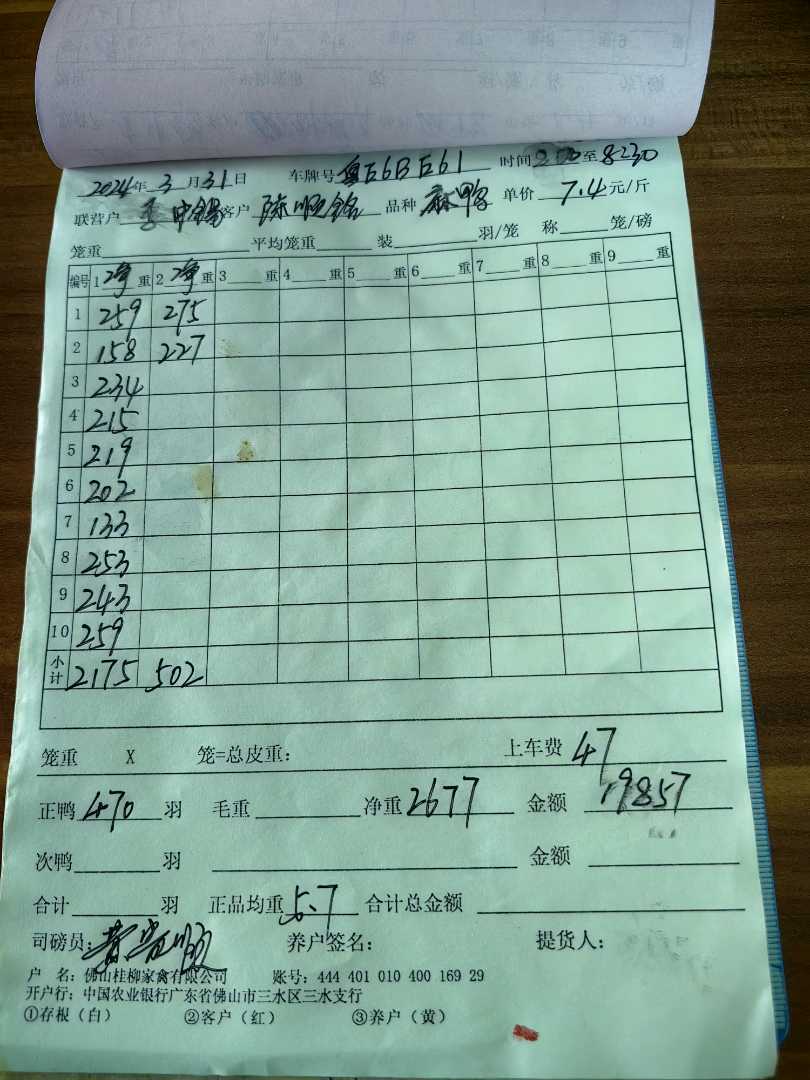 2024年 3 月 31 日 车牌号 粤E6BE61 时间 至 8:30
联营户 李中锡 客户 陈顺铭 品种 麻鸭 单价 7.4 元/斤
笼重 平均笼重 装 羽/笼 称 笼/磅
编号 1 净 重 2 净 重 3 重 4 重 5 重 6 重 7 重 8 重 9 重
1 259 275
2 158 227
3 234
4 215
5 219
6 202
7 133
8 253
9 243
10 259
小计 2175 502
笼重 X 笼=总皮重: 上车费 47
正鸭 470 羽 毛重 净重 2677 金额 19857
次鸭 羽 金额
合计 羽 正品均重 5.7 合计总金额
司磅员: 养户签名: 提货人:
户 名: 佛山桂柳家禽有限公司 账号: 444 401 010 400 169 29
开户行: 中国农业银行广东省佛山市三水区三水支行
①存根（白） ②客户（红） ③养户（黄）